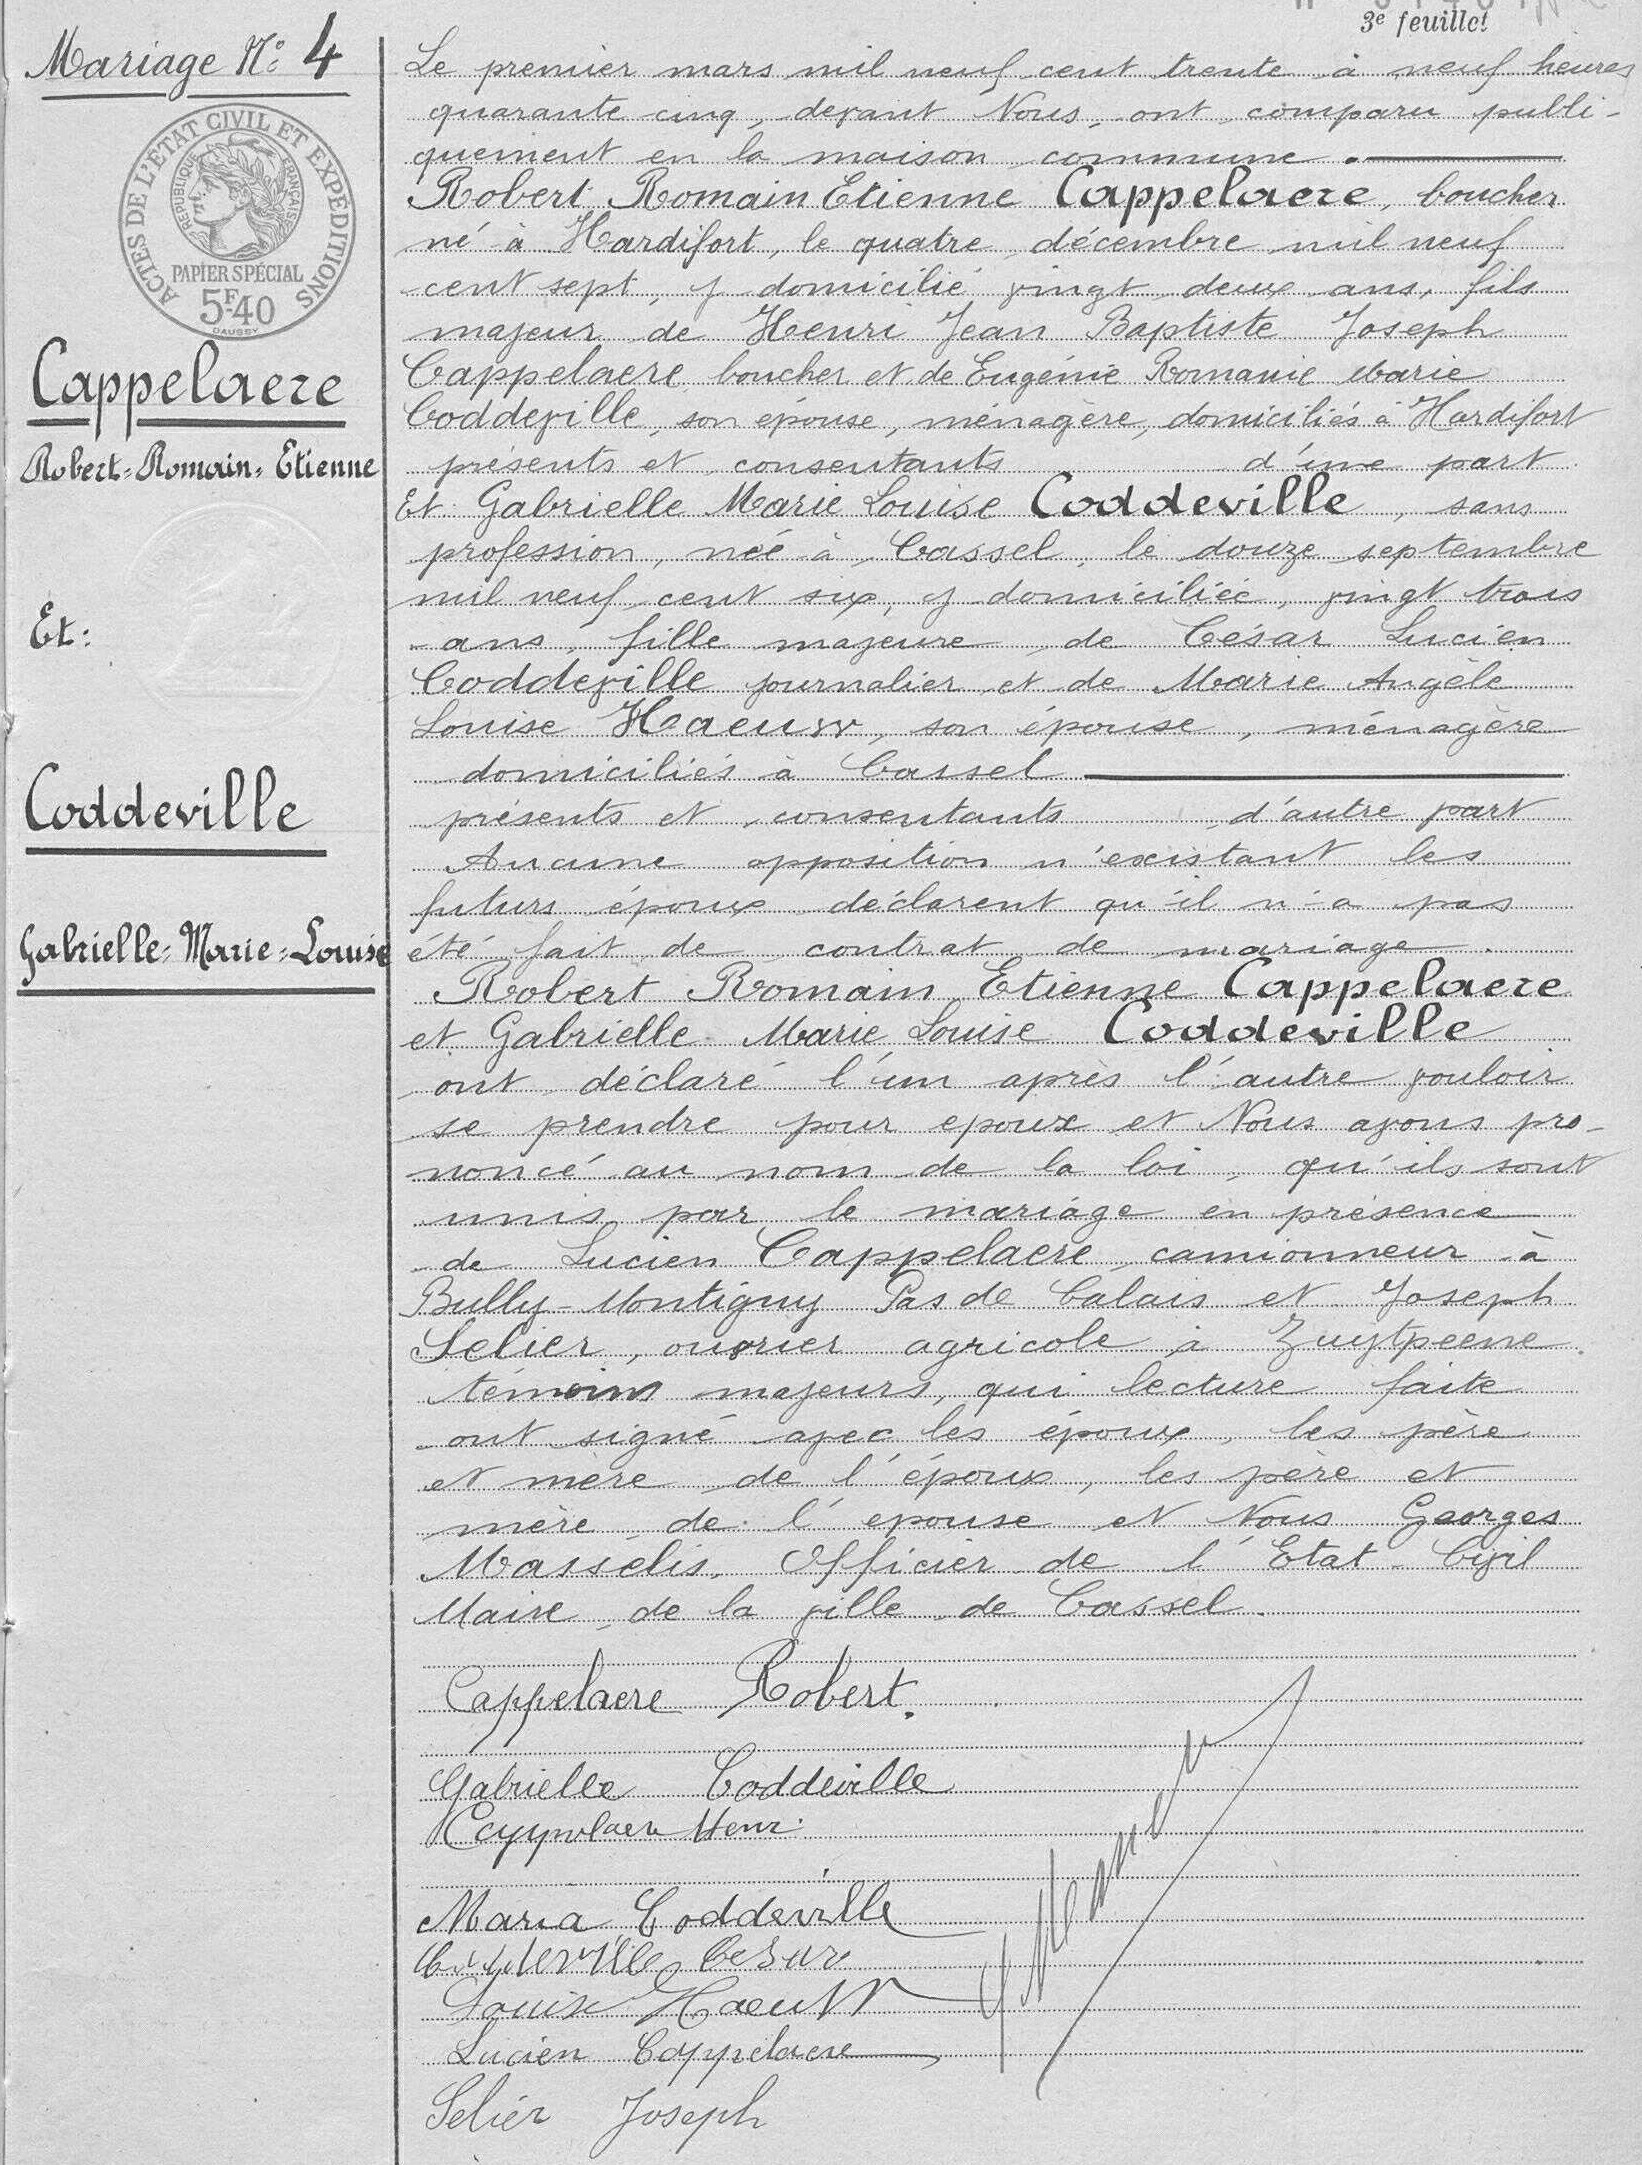 3e feuillet
Mariage No 4
ACTES DE L'ÉTAT CIVIL ET EXPÉDITIONS
RÉPUBLIQUE FRANÇAISE
PAPIER SPÉCIAL
5F40
DAUSSY
Cappelaere
Robert=Romain=Etienne
Et:
Coddeville
Gabrielle=Marie=Louise
Le premier mars mil neuf cent trente à neuf heures
quarante cinq, devant Nous, ont comparu publi-
quement en la maison commune.
Robert Romain Etienne Cappelaere, boucher
né à Hardifort, le quatre décembre mil neuf
cent sept, y domicilié vingt deux ans, fils
majeur de Henri Jean Baptiste Joseph
Cappelaere boucher et de Eugénie Romanie Marie
Coddeville, son épouse, ménagère, domiciliés à Hardifort
présents et consentants d'une part
Et Gabrielle Marie Louise Coddeville, sans
profession, née à Cassel, le douze septembre
mil neuf cent six, y domiciliée, vingt trois
ans, fille majeure de César Lucien
Coddeville journalier et de Marie Angèle
Louise Haeuw, son épouse, ménagère
domiciliés à Cassel
présents et consentants d'autre part
Aucune opposition n'existant les
futurs époux déclarent qu'il n'a pas
été fait de contrat de mariage.
Robert Romain Etienne Cappelaere
et Gabrielle Marie Louise Coddeville
ont déclaré l'un après l'autre vouloir
se prendre pour epoux et Nous avons pro-
noncé au nom de la loi, qu'ils sont
unis par le mariage en présence
de Lucien Cappelaere camionneur à
Bully-Montigny Pas de Calais et Joseph
Selier, ouvrier agricole à Zuytpeene.
témoins majeurs, qui lecture faite
ont signé avec les époux, les père
et mère de l'époux, les père et
mère de l'epouse et Nous Georges
Masselis, Officier de l'Etat-Civil
Maire de la ville de Cassel.
Cappelaere Robert.
Gabrielle Coddeville
Cappelaere Henri
Maria Coddeville
Coddeville Cesar
Louise Haeuw
Lucien Cappelaere
Selier Joseph